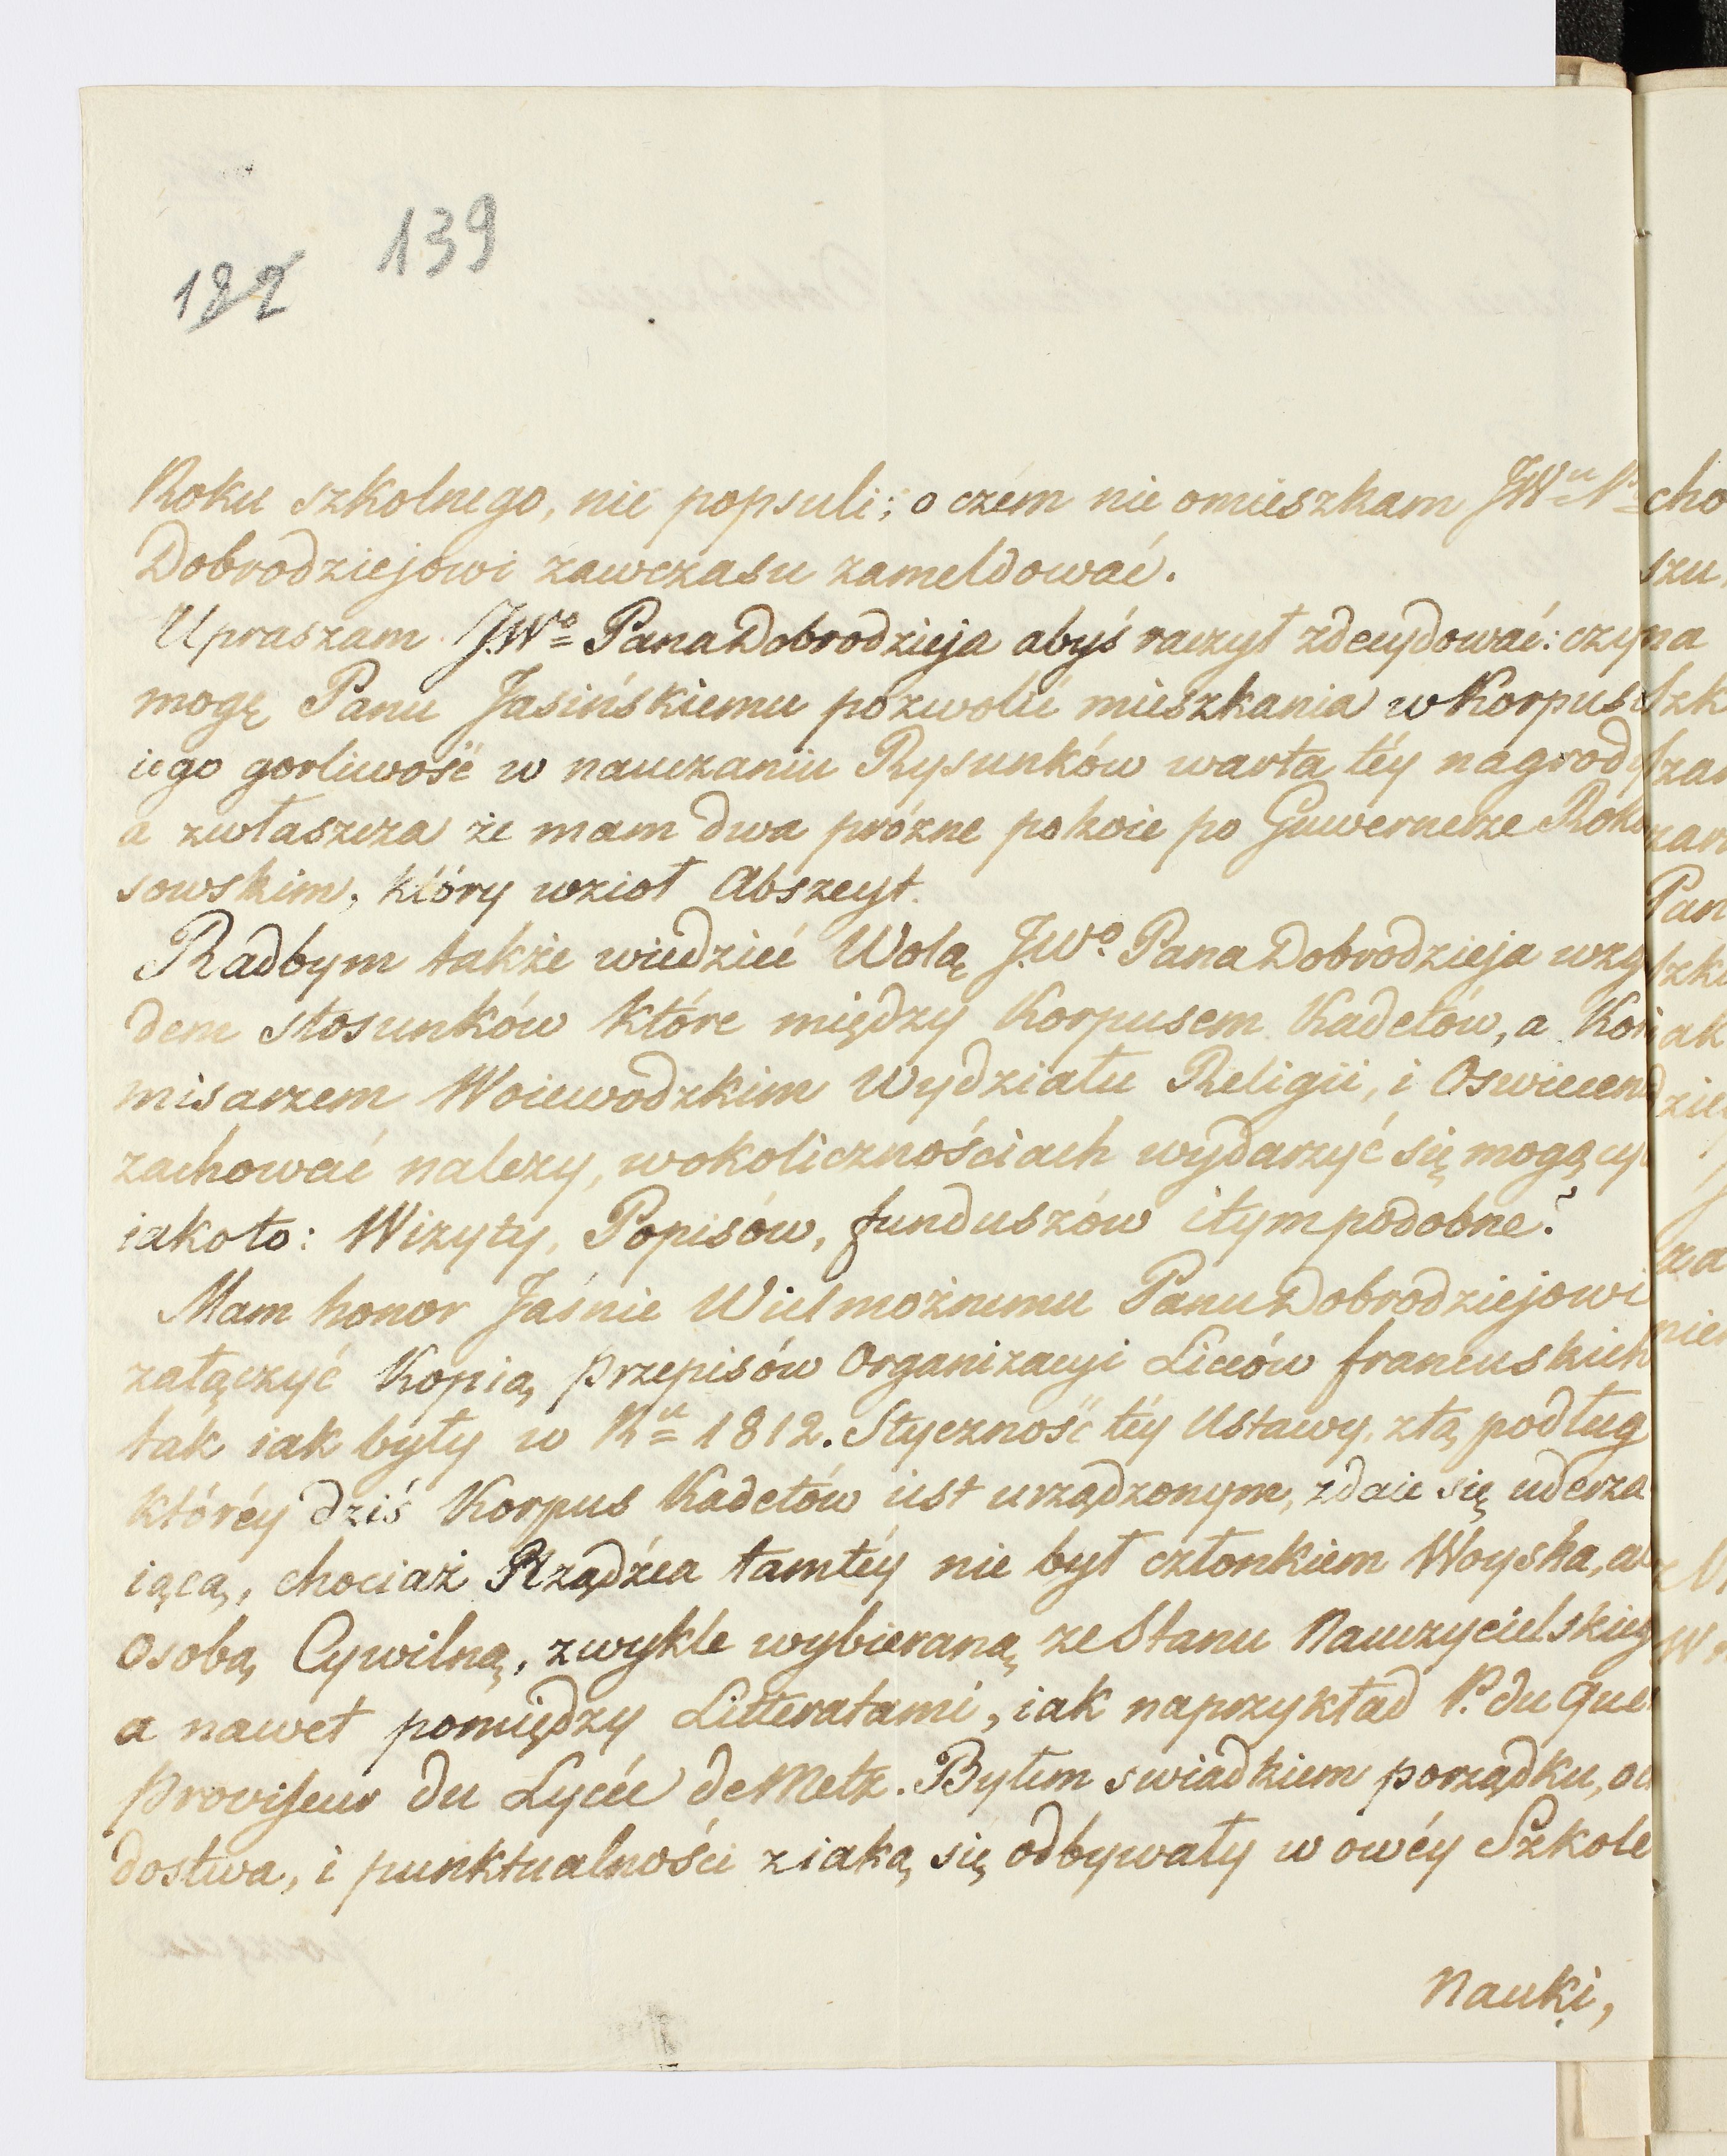 139
122
Roku szkolnego, nie popsuli; o czém nie omieszkam JWu P
Dobrodziejowi zawczasu zameldować.
Upraszam JWo Pana Dobrodzieja abyś raczył zdecydować: czy
mogę Panu Jasińskiemu pozwolić mieszkania w Korpus
iego gorliwość w nauczaniu Rysunków warta téy nagrody
a zwłaszcza że mam dwa prózne pokoie po Guwernerze Roko
sowskim, który wzioł Abszeyt.
Radbym także wiedzieć Wolą J.Wo. Pana Dobrodzieja wzg
dem stosunków które między Korpusem Kadetów, a Kom
misarzem Woiewodzkim Wydziału Religii, i Oswiecen
zachować nalezy, w okolicznościach wydarzyć się mogący
iako to: Wizyty, Popisów, funduszów i tym podobne?
Mam honor Jaśnie Wielmożnemu Panu Dobrodziejowi
załączyć Kopią przepisów Organizacyi Liceów francuskich
tak iak były w Ru 1812. Styczność téy Ustawy, z tą podług
któréy dziś Korpus Kadetów iest urządzonym, zdaie się uderza
iącą, chociaż Rządźca tamtéy nie był członkiem Woyska, a
Osobą Cywilną, zwykle wybieraną ze Stanu Nauczycielskieg
a nawet pomiędzy Litteratami, iak naprzykład P. du Que
Proviseur du Lycée de Metz. Byłem swiadkiem porządku, o
dostwa, i punktualności z iaką się odbywały w owéy Szkole
Nauki,